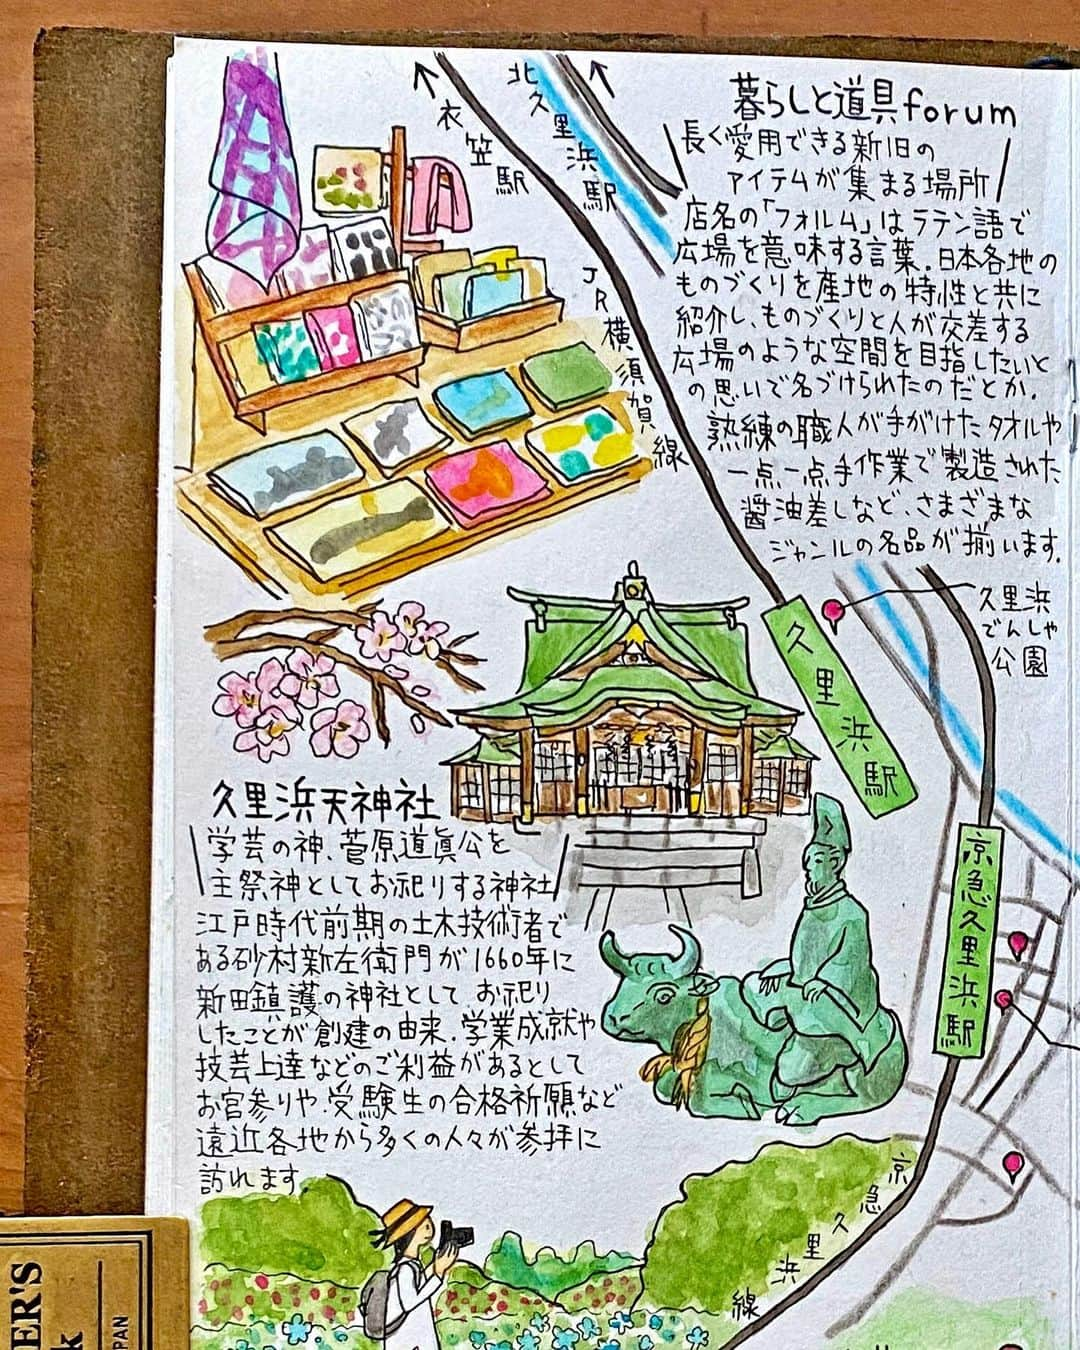 衣笠駅
北久里浜駅
JR横須賀線
暮らしと道具forum
長く愛用できる新旧の
アイテムが集まる場所
店名の「フォルム」はラテン語で
広場を意味する言葉.日本各地の
ものづくりを産地の特性と共に
紹介し、ものづくりと人が交差する
広場のような空間を目指したいと
の思いで名づけられたのだとか.
熟練の職人が手がけたタオルや
一点一点手作業で製造された
醤油差しなど、さまざまな
ジャンルの名品が揃います.
久里浜
でんしゃ
公園
久里浜駅
京急久里浜駅
久里浜天神社
学芸の神、菅原道眞公を
主祭神としてお祀りする神社
江戸時代前期の土木技術者で
ある砂村新左衛門が1660年に
新田鎮護の神社として、お祀り
したことが創建の由来.学業成就や
技芸上達などのご利益があるとして
お宮参りや、受験生の合格祈願など
遠近各地から多くの人々が参拝に
訪れます.
京急久里浜線
ER'S
k
PAN